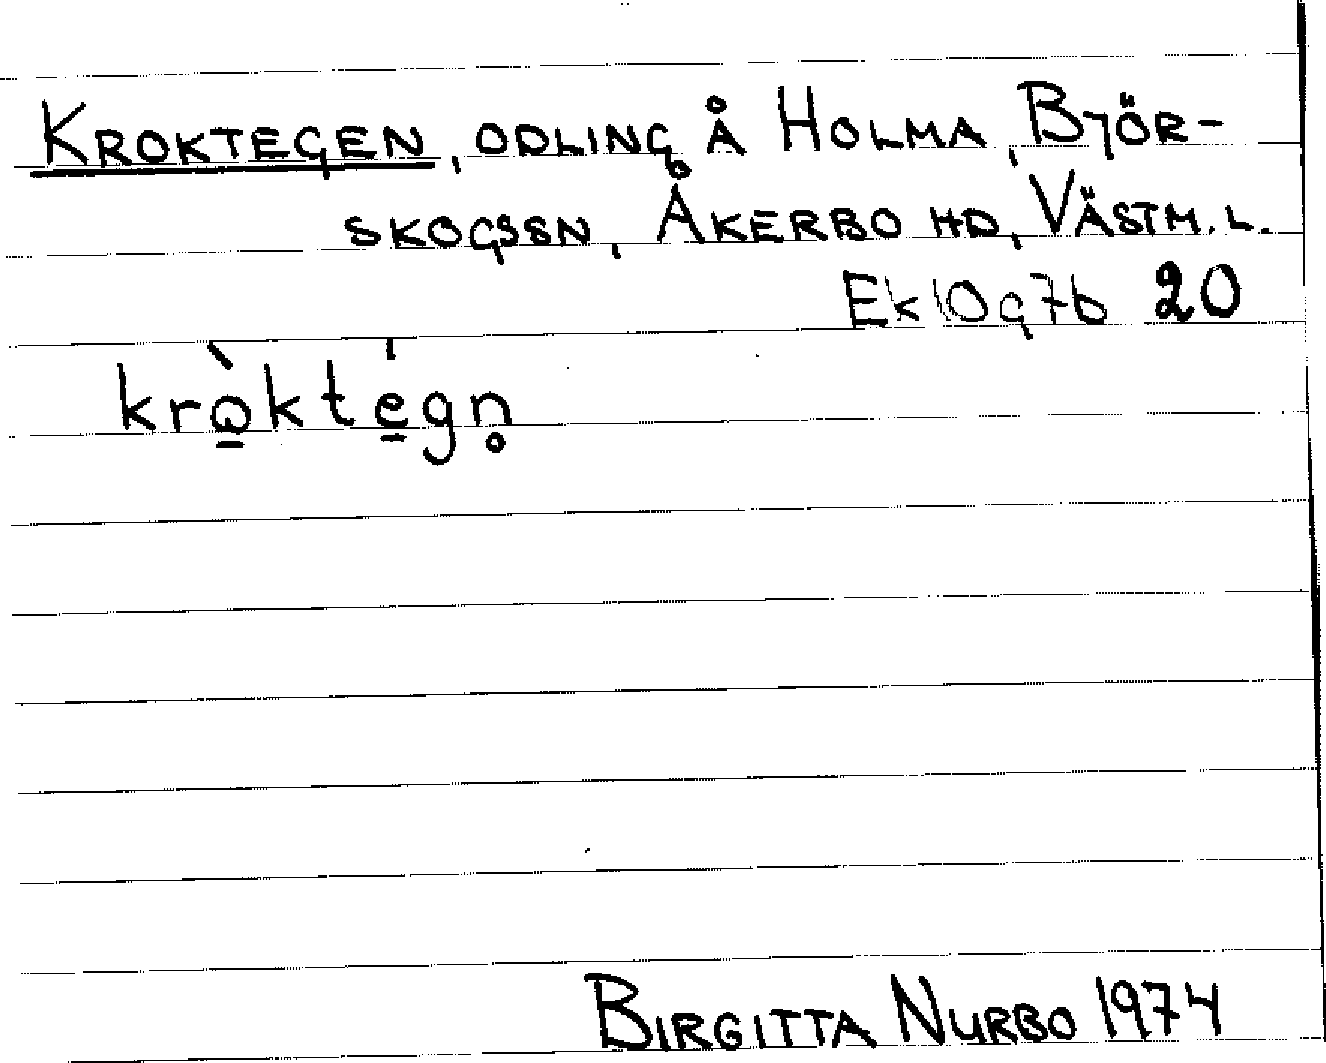 KROKTEGEN, ODLING Å HOLMA, BJÖR-
SKOGSSN, ÅKERBO HD, VÄSTM. L.
Ek 10g7b 20
krὼ̲kté̲gn̥
BIRGITTA NURBO 1974